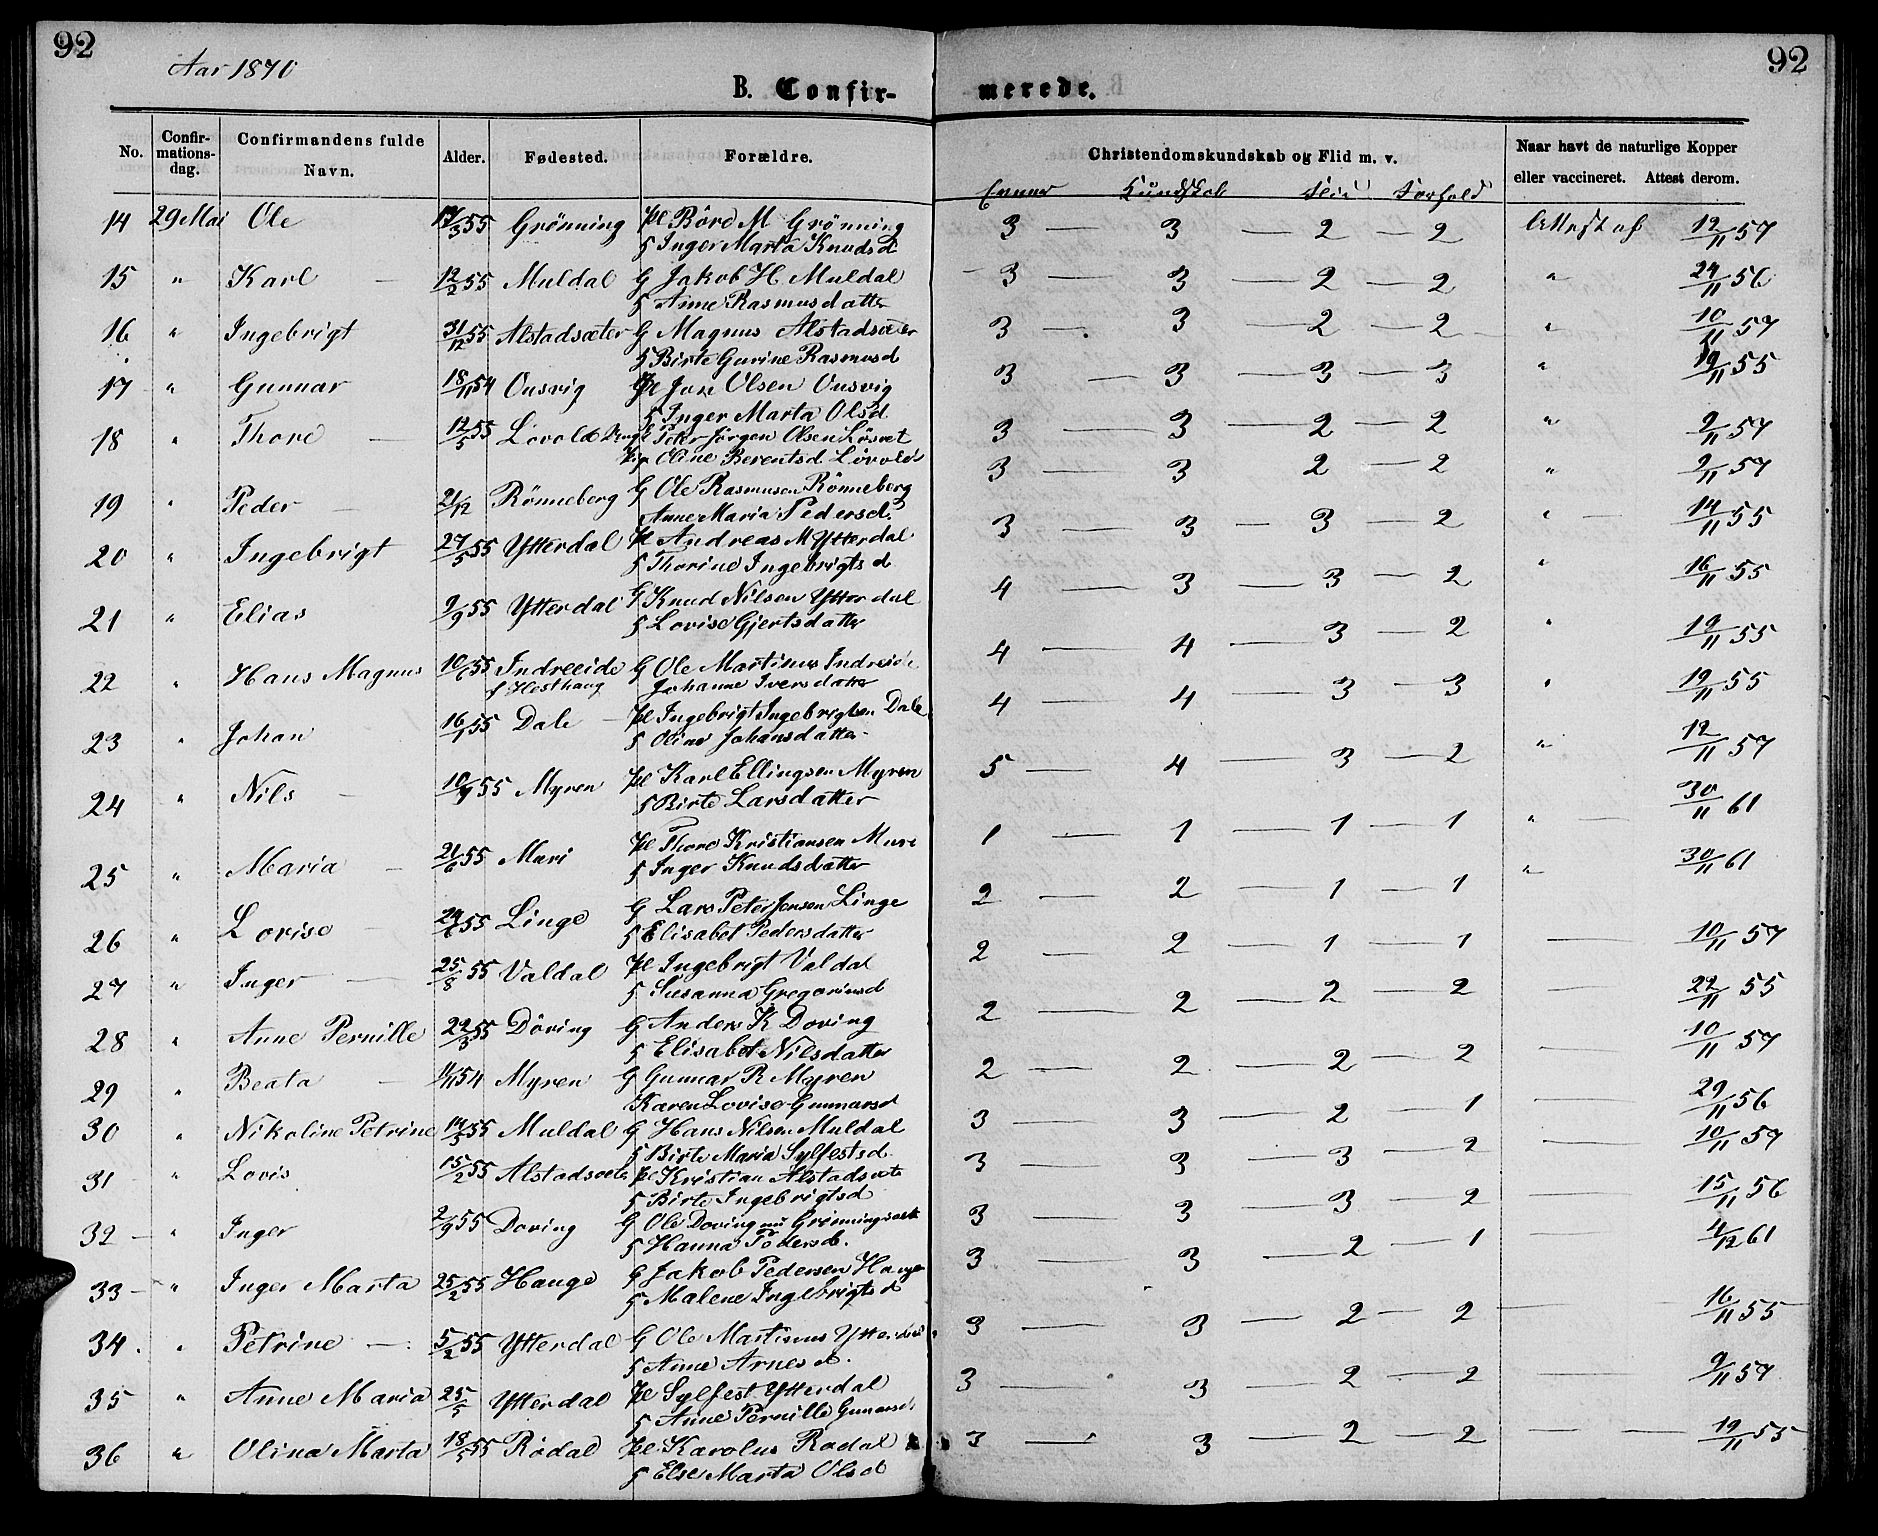 92
92
Aar 1870
B. Confir- merede.
No. Confir-mations-dag. Confirmandens fulde Navn. Alder. Fødested. Forældre. Christendomskundskab og Flid m. v. Naar havt de naturlige Kopper eller vaccineret. Attest derom.
Evner Kundskab Flid Forhold
14 29 Mai Ole 17/3 55 Grönning Pl Börd M Grönning 3 — 3 — 2 — 2 Attest af 12/11 57
5 Inger Marta Knudsd
15 " Karl — 12/2 55 Muldal G Jakob H Muldal 3 — 3 — 2 — 2 " 24/11 56
5 Anne Rasmusdatter
16 " Ingebrigt 31/12 55 Alstadsæter G Magnus Alstadsæter 3 — 3 — 2 — 2 " 10/11 57
5 Birte Gurine Rasmusd
17 " Gunnar 18/11 54 Onsvig Pl Jon Olsen Onsvig 3 — 3 — 3 — 3 " 19/11 55
5 Inger Marta Olsd
18 " Thore — 12/5 55 Lovold Peter Jörgen Olsen 3 — 3 — 2 — 2 " 2/11 57
Oline Berentsd Lövold
19 " Peder — 21/12 Rönneberg G Ole Rasmusen Rönneberg 3 — 3 2 — 2 " 2/11 57
Anne Maria Pedersd.
20 " Ingebrigt 27/5 55 Ytterdal Pl Andreas M Ytterdal 3 — 3 — 3 — 2 " — 14/11 55
5 Thorine Ingebrigtsd
21 " Elias 9/9 55 Ytterdal G Knud Nilsen Ytterdal 4 — 3 — 3 — 2 " 16/11 55
5 Lovise Gjertsdatter
22 " Hans Magnus 10/6 55 Indreeide G Ole Martinus Indreide 4 — 4 — 3 — 2 " 19/11 55
f Hesthaug Johanne Iversdatter
23 " Johan 16/1 55 Dale — Pl Ingebrigt Ingebrigtsen Dale 4 — 4 — 3 — 3 " 19/11 55
5 Oline Johansdatter
24 " Nils — 10/9 55 Myren Pl Karl Ellingsen Myren 5 — 4 — 3 — 2 " 12/11 57
5 Birte Larsdatter
25 " Maria — 21/6 55 Muri Pl Thore Kristiansen Mure 1 — 1 — 1 — 1 " — 30/11 61
5 Inger Knudsdatter
26 " Lovise — 24/6 55 Linge G Lars Peter Jensen Linge 2 — 2 — 1 — 1 " 30/11 61
5 Elisabet Pedersdatter
27 " Inger — 25/8 55 Valdal Pl Ingebrigt Valdal 2 — 2 — 1 — 1 — 10/11 57
5 Susanna Gregoriusd
28 " Anne Pernille 22/3 55 Döving G Anders K Doving 2 — 2 — 2 — 2 — 22/11 55
5 Elisabet Nilsdatter
29 " Beata — 11/11 54 Myren G Gunnar R Myren 2 — 2 — 2 — 2 — 10/11 57
Karen Lovise Gunnarsd
30 " Nikoline Petrine 14/3 55 Muldal G Hans Nilsen Muldal 3 — 3 — 2 — 1 — 29/11 56
5 Birte Maria Sylfestsd.
31 " Lovis 15/2 55 Alstadsæte Pl Kristian Alstadsæte 3 — 3 — 3 — 2 — 10/11 57
5 Birte Ingebrigtsd
32 — " Inger 2/9 55 Doving G Ole Doving nu Grønningsæt 3 — 3 — 3 — 2 — 15/11 56
5 Hanna Pedersd.
33 — " Inger Marta 25/2 55 Hauge G Jakob Pedersen Hauge 3 — 3 — 2 — 1 — 4/12 61
5 Malene Ingebrigtsd
34. " Petrine — 5/2 55 Ytterdal G Ole Martinus Ytterdal 3 — 3 — 2 — 2 — 16/11 55
5 Anne Arnesd.
35 " Anne Maria 25/5 Ytterdal Pl Sylfest Ytterdal 3 — 3 — 2 — 2 — 9/11 57
5 Anne Pernille Gunnarsd
36 " Olina Marta 18/5 55 Rödal Pl Karolus Rödal 3 — 3 — 2 — 2 — — 19/11 55
5 Else Marta Olsd